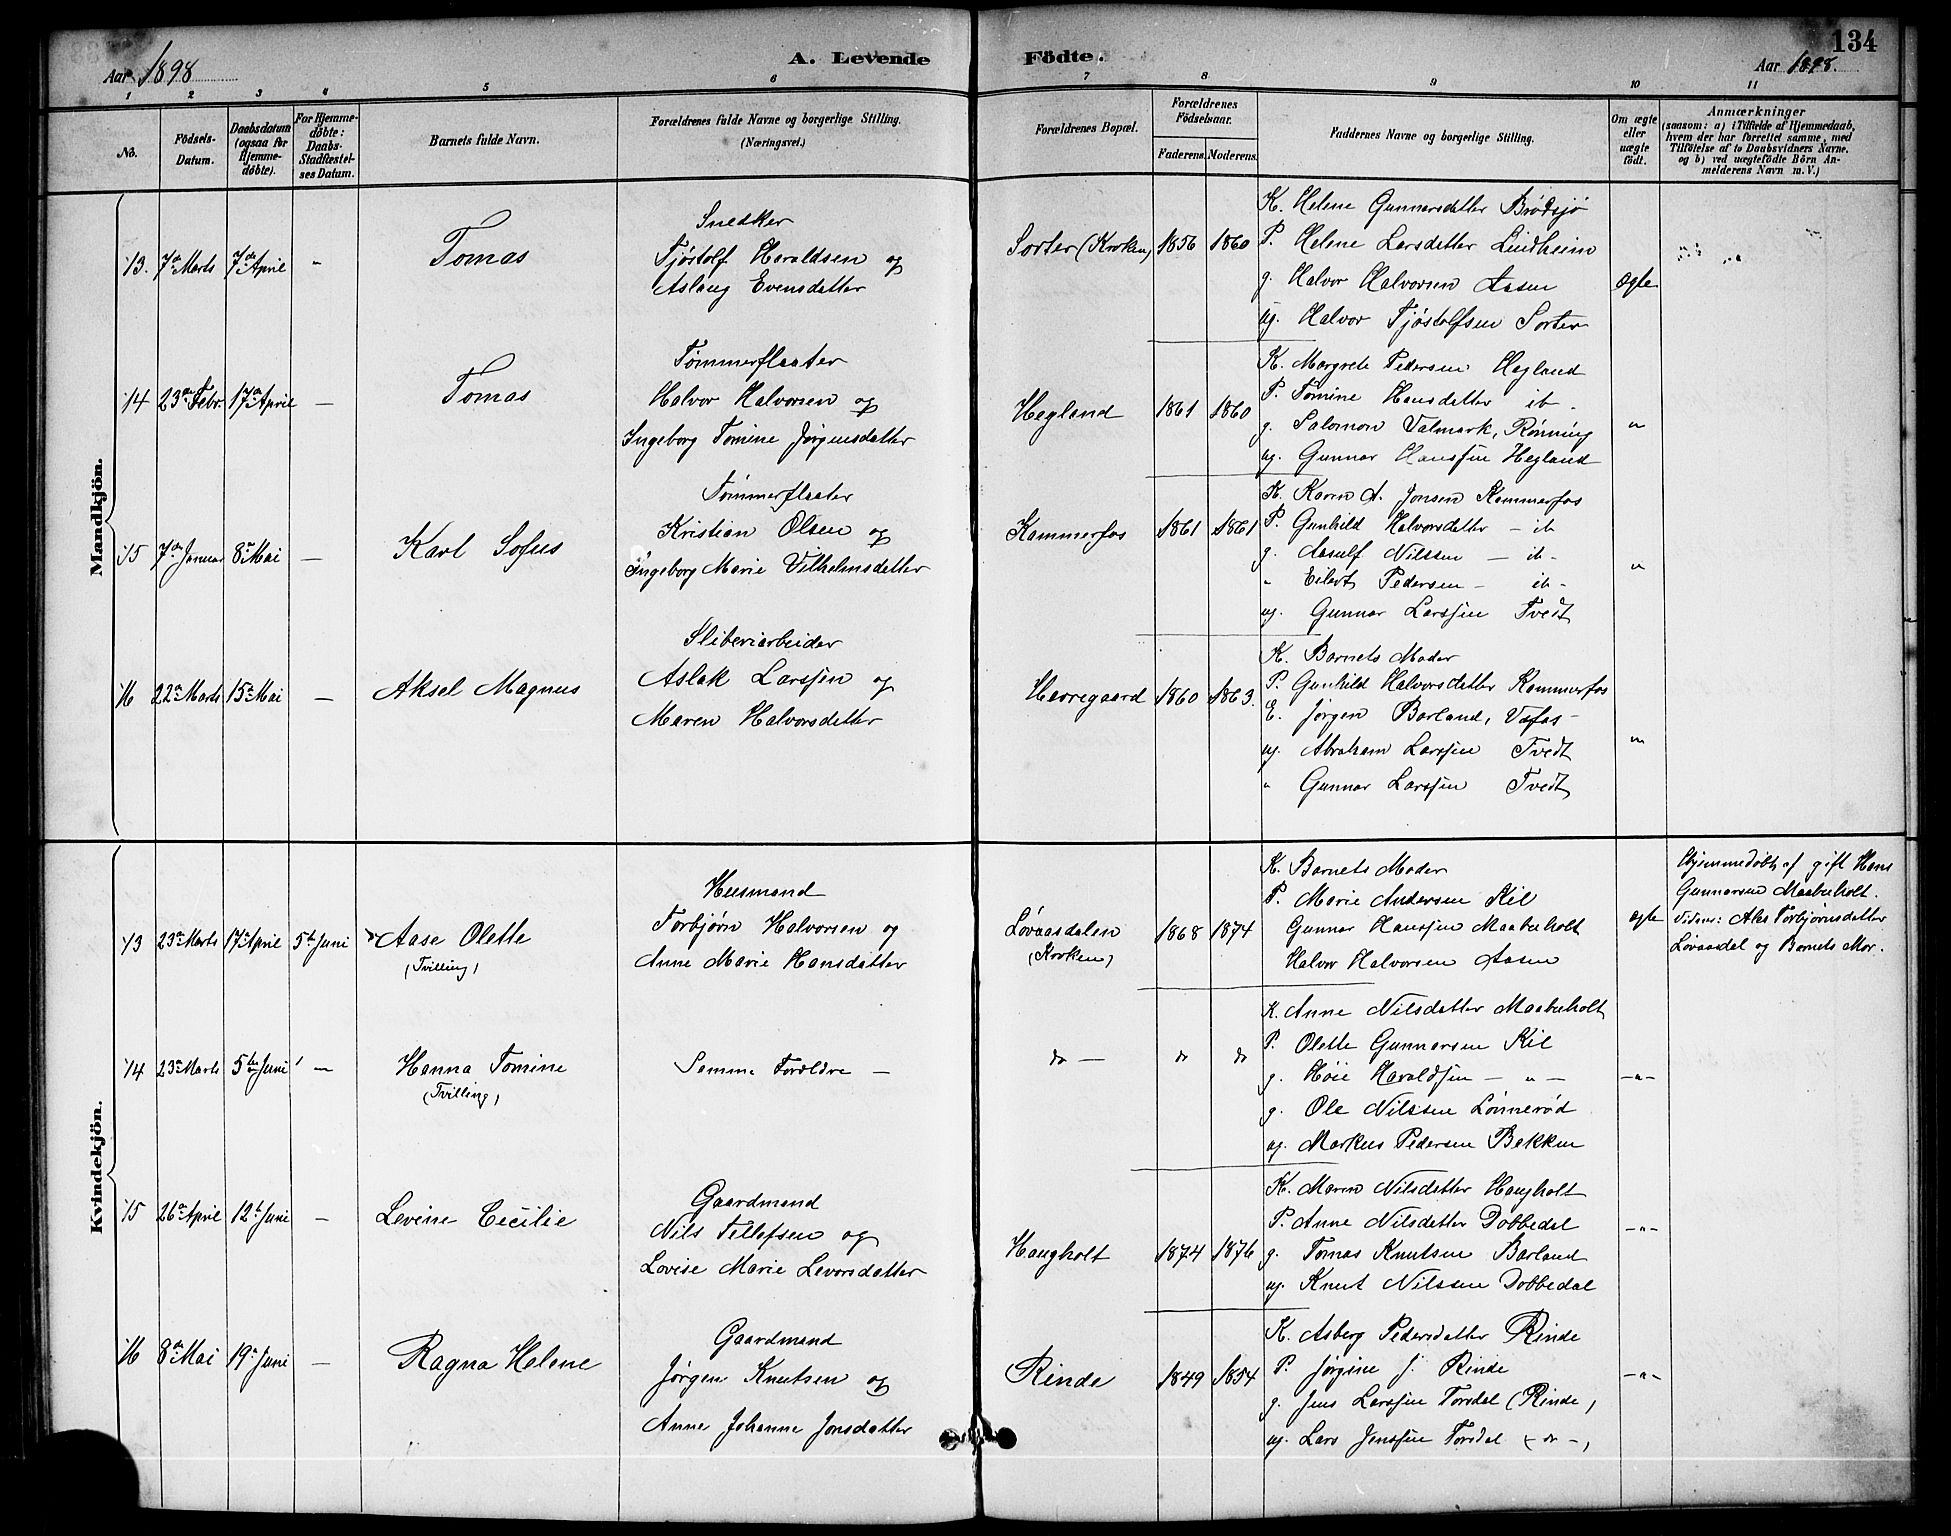 134
Aar 1898
A. Levende Födte.
Aar 1898.
1 2 3 4 5 6 7 8 9 10 11
No.
Födsels-Datum.
Daabsdatum (ogsaa for Hjemme-döbte).
For Hjemme-döbte: Daabs-Stadfæstel-ses Datum.
Barnets fulde Navn.
Forældrenes fulde Navne og borgerlige Stilling. (Næringsvei.)
Forældrenes Bopæl.
Forældrenes Födselsaar.
Faderens. Moderens.
Faddernes Navne og borgerlige Stilling.
Om ægte eller uægte födt.
Anmærkninger
(saasom: a) i Tilfælde af Hjemmedaab, hvem der har forrettet samme, med Tilföielse af to Daabsvidners Navne. og b) ved uægtefödte Börn An-melderens Navn m. V.)
Mandkjön.
13. 7de Marts 7de April "
Tomas
Snedker
Tjøstolf Haraldsen og
Aslaug Evensdatter
Sorter (Kroken) 1856 1860
K. Helene Gunnarsdatter Brødsjø
P. Helene Larsdatter Lindheim
g. Halvor Halvorsen Aasen
ug. Halvor Tjøstolfsen Sorter
Ægte
14 23de Febr. 17de April —
Tomas
Tømmerflaater
Halvor Halvorsen og
Ingeborg Tomine Jørgensdatter
Hegland 1861 1860
K. Margrete Pedersen Hegland
P. Tomine Hansdatter ib.
g. Salomon Valmark, Rønning
ug. Gunnar Hanssen Hegland
"
15 7de Januar 8de Mai —
Karl Sofus
Tømmerflaater
Kristian Olsen og
Ingeborg Marie Vilhelmsdatter
Kammerfos 1861 1861
K. Karen A. Jonsen Kammerfos
P. Gunhild Halvorsdatter — ib
g. Aasulf Nilssen — ib -
" Eilert Pedersen — ib -
ug. Gunnar Larssen Tvedt
"
16 22de Marts 15de Mai —
Aksel Magnus
Sliberiarbeider
Aslak Larssen og
Maren Halvorsdatter
Herregaard 1860 1863.
K. Barnets Moder
P. Gunhild Halvorsdatter Kammerfos
E. Jørgen Barland, Vafos -
ug. Abraham Larssen Tvedt
" Gunnar Larssen Tvedt
"
Kvindekjön.
13 23de Marts 17de April 5te Juni
Aase Olette
(Tvilling)
Husmand
Torbjørn Halvorsen og
Anne Marie Hansdatter
Løvaasdalen
(Kroken)
1868 1874
K. Barnets Moder
P. Marie Andersen Kil
Gunnar Hanssen Maaberholt
Halvor Halvorsen Aasen
ægte
Hjemmedøbt af gift Hans
Gunnarsen Maaberholt.
Vidner: Ales Torbjørnsdatter
Løvaasdal og Barnets Mor.
14 23de Marts 5te Juni —
Hanna Tomine
(Tvilling)
Samme Forældre —
do — do do
K. Anne Nilsdatter Maaberholt
P. Olette Gunnarsen Kil
g. Høie Haraldsen — " —
g. Ole Nilssen Lønnerød
ug. Markus Pedersen Bekken
— " —
15 26de April 12te Juni —
Levine Cecilie
Gaardmand
Nils Tellefsen og
Lovise Marie Levorsdatter
Haugholt 1874 1876
K. Maren Nilsdatter Haugholt
P. Anne Nilsdatter Dobbedal
g. Tomas Knutsen Barland
ug. Knut Nilssen Dobbedal
— " —
16 8de Mai 19de Juni —
Ragna Helene
Gaardmand
Jørgen Knutsen og
Anne Johanne Jonsdatter
Rinde 1849 1854
K. Asberg Pedersdatter Rinde
P. Jørgine J. Rinde
g. Jens Larssen Torsdal (Rinde)
ug. Lars Jenssen Torsdal (- do -)
— " —